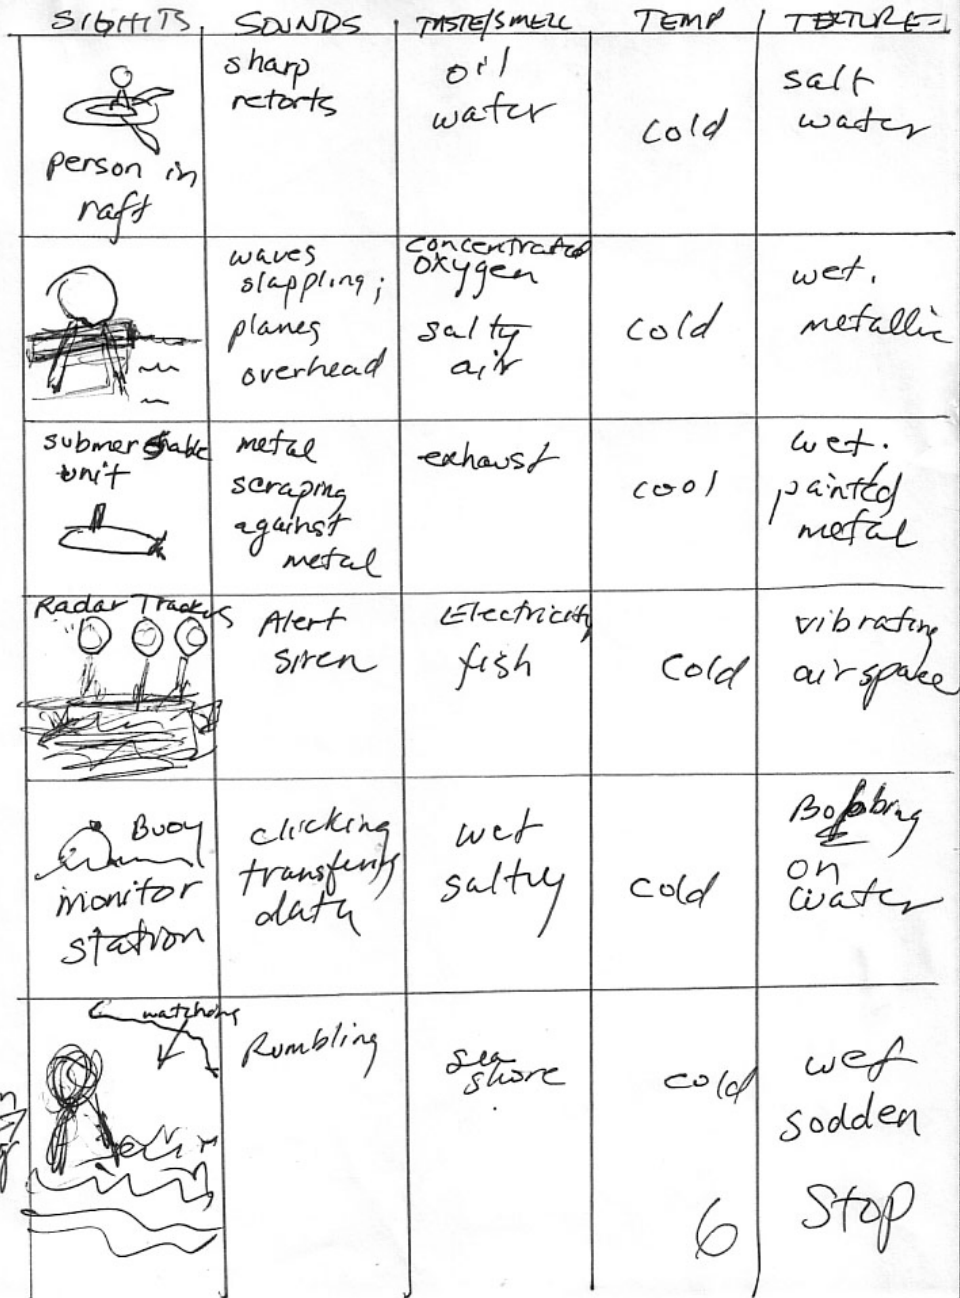 SIGHTS SOUNDS TASTE/SMELL TEMP TEXTURES
person in
raft
sharp
retorts
oil
water
cold
salt
water
waves
slappling;
planes
overhead
concentrated
oxygen
salty
air
cold
wet.
metallic
submersable
unit
metal
scraping
against
metal
exhaust
cool
wet.
painted
metal
Radar Trackers
Alert
siren
Electricity
fish
cold
vibrating
airspace
Buoy
monitor
station
clicking
transfering
data
wet
saltly
cold
Bobbing
on
water
watching
Rumbling
sea
shore
cold
wet
sodden
6
Stop